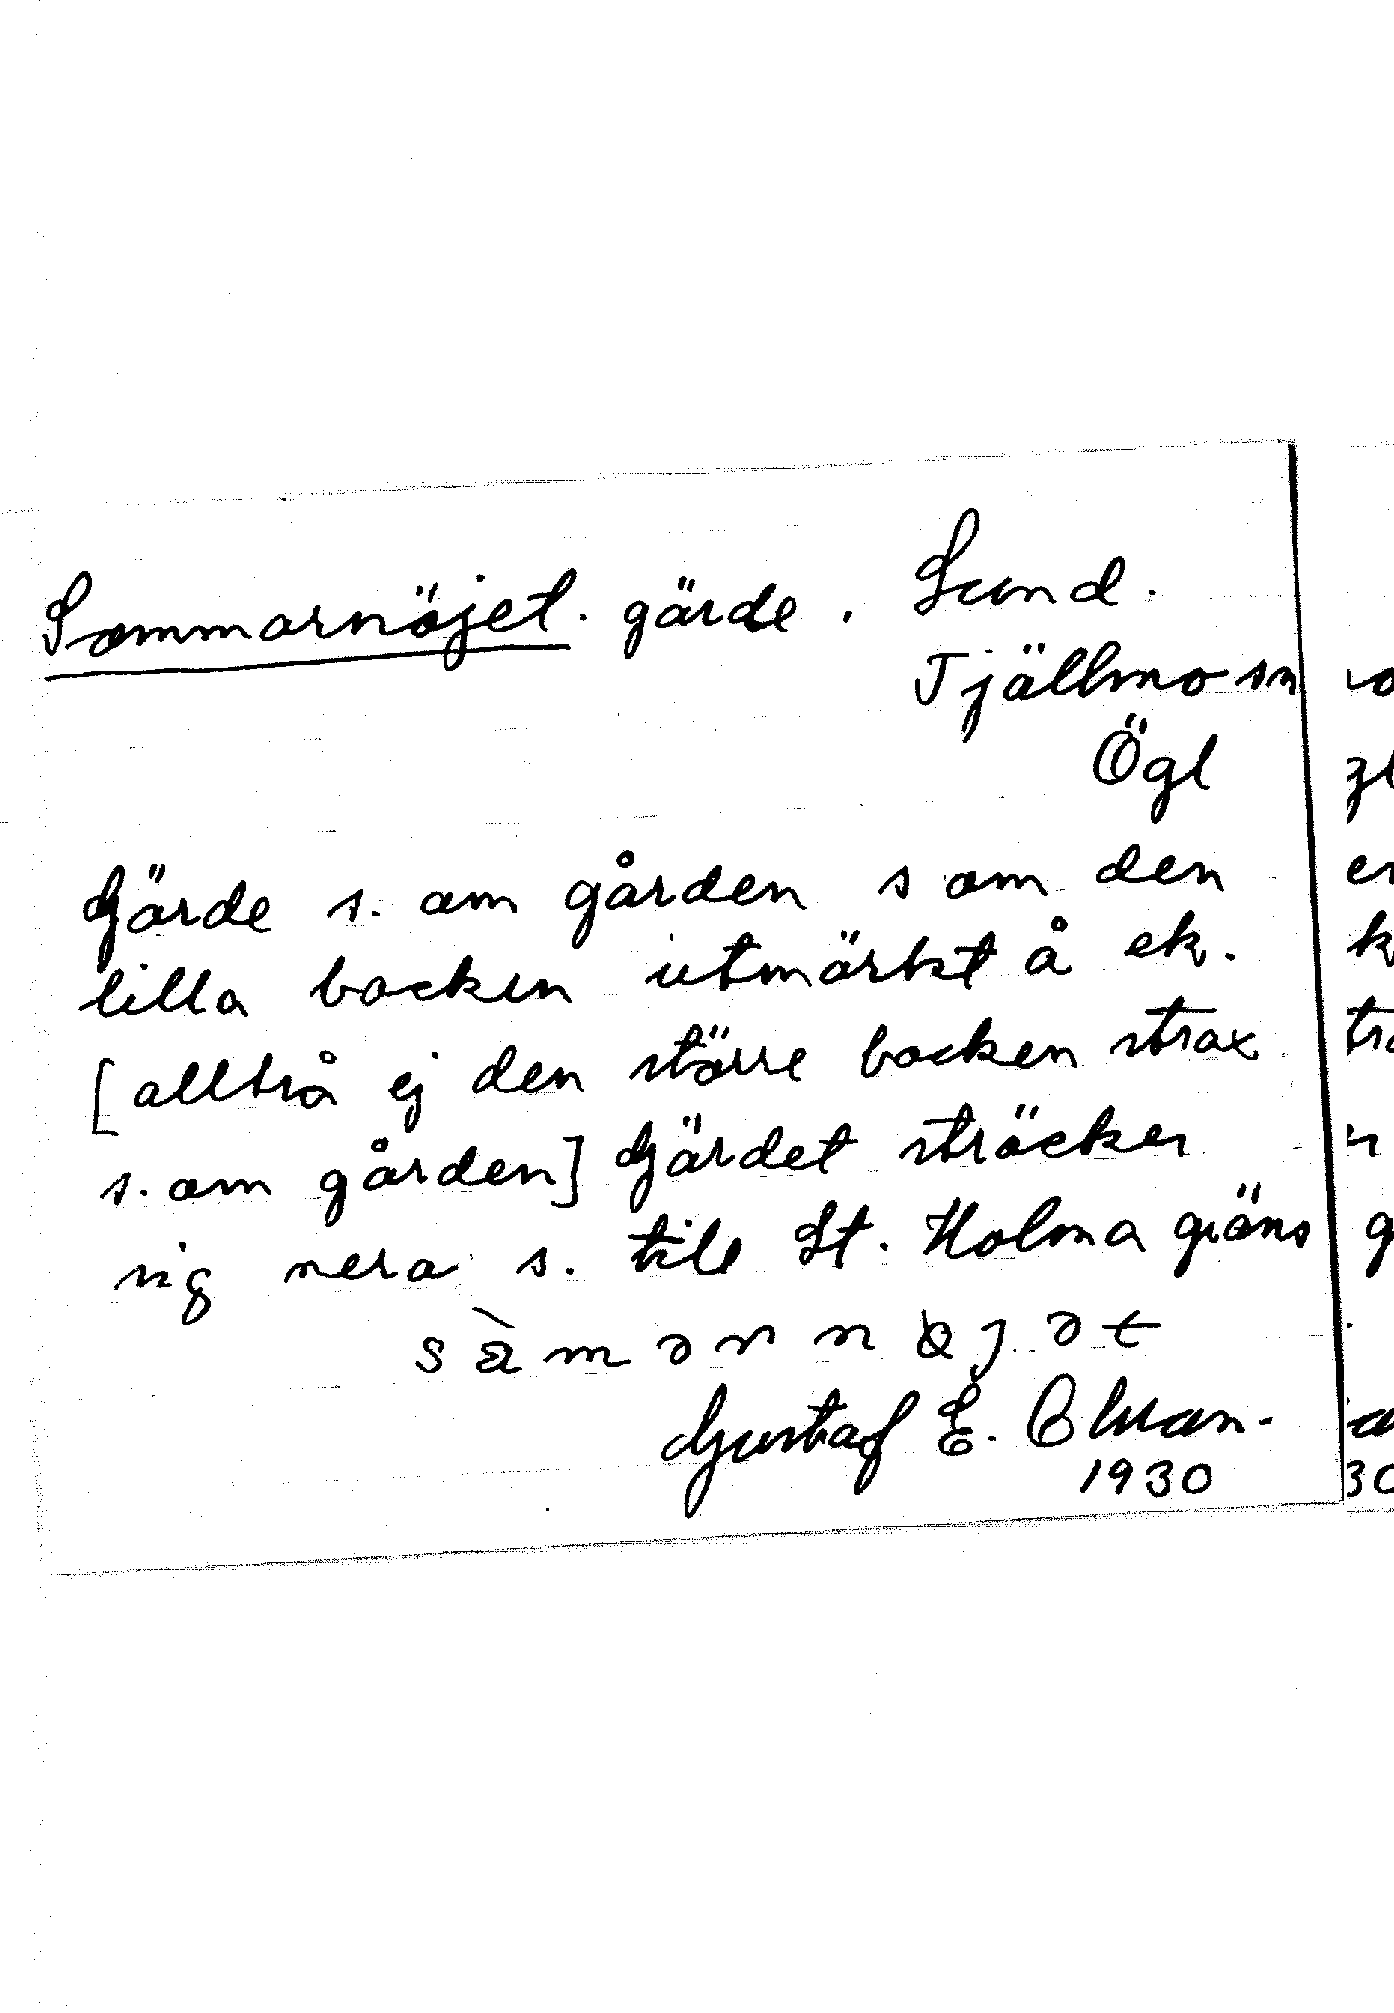 Sommarnöjet. gärde. Lund.
Tjällmo sn
Ögl
Gärde s. om gården som den
lilla backen utmärkt å ek.
[alltså ej den större backen strax
s. om gården] Gärdet sträcker
sig nera s. till St. Holma gräns
Gustaf E.
1930